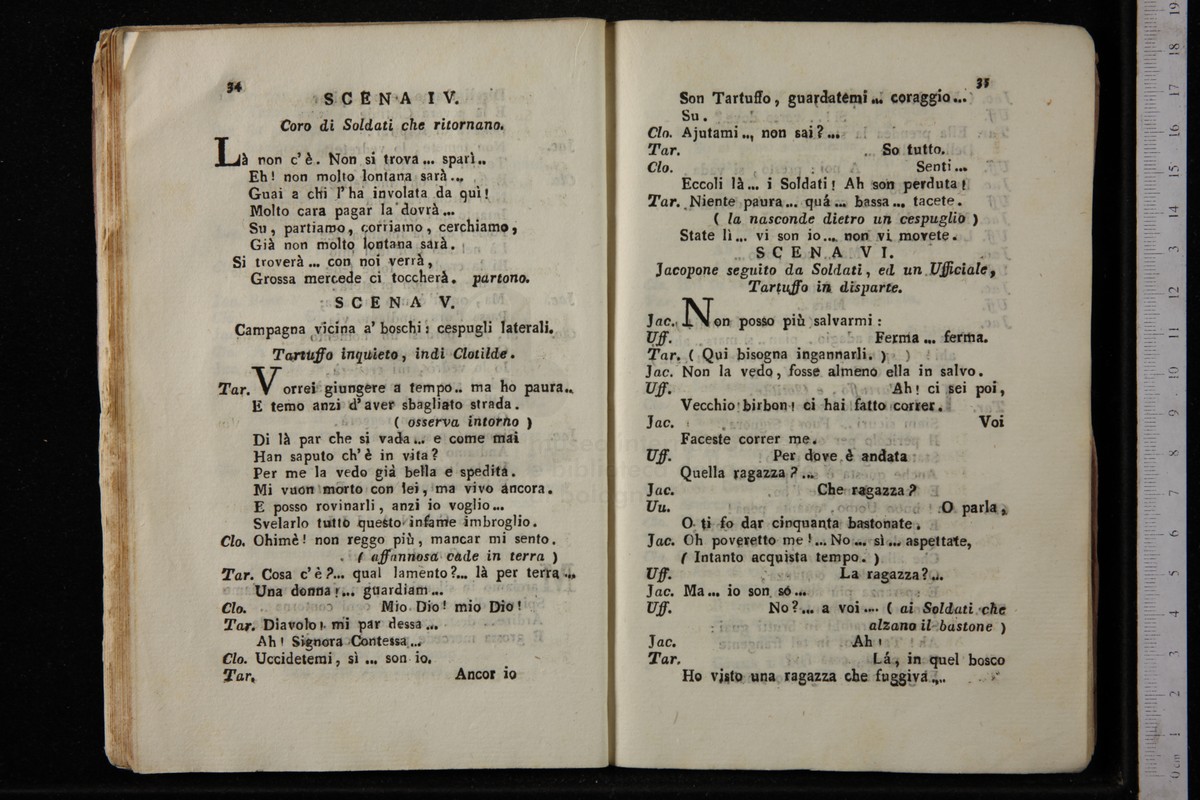 34
SCENA IV.
Coro di Soldati che ritornano.
Là non c'è. Non si trova... sparì..
Eh! non molto lontana sarà...
Guai a chi l'ha involata da quì!
Molto cara pagar la dovrà...
Su, partiamo, corriamo, cerchiamo,
Già non molto lontana sarà.
Si troverà... con noi verrà,
Grossa mercede ci toccherà. partono.
SCENA V.
Campagna vicina a' boschi: cespugli laterali.
Tartuffo inquieto, indi Clotilde.
Tar. Vorrei giungere a tempo.. ma ho paura..
E temo anzi d'aver sbagliato strada.
( osserva intorno )
Di là par che si vada... e come mai
Han saputo ch'è in vita?
Per me la vedo già bella e spedita.
Mi vuon morto con lei, ma vivo ancora.
E posso rovinarli, anzi io voglio...
Svelarlo tutto questo infame imbroglio.
Clo. Ohimè! non reggo più, mancar mi sento.
( affannosa cade in terra )
Tar. Cosa c'è?... qual lamento?... là per terra...
Una donna!... guardiam...
Clo. Mio Dio! mio Dio!
Tar. Diavolo! mi par dessa...
Ah! Signora Contessa...
Clo. Uccidetemi, sì... son io.
Tar. Ancor io
35
Son Tartuffo, guardatemi... coraggio...
Su.
Clo. Ajutami.., non sai?...
Tar. So tutto.
Clo. Senti...
Eccoli là... i Soldati! Ah son perduta!
Tar. Niente paura... quá... bassa... tacete.
( la nasconde dietro un cespuglio )
State lì... vi son io... non vi movete.
SCENA VI.
Jacopone seguito da Soldati, ed un Ufficiale,
Tartuffo in disparte.
Jac. Non posso più salvarmi:
Uff. Ferma... ferma.
Tar. ( Qui bisogna ingannarli. )
Jac. Non la vedo, fosse almeno ella in salvo.
Uff. Ah! ci sei poi,
Vecchio birbon! ci hai fatto correr.
Jac. Voi
Faceste correr me.
Uff. Per dove è andata
Quella ragazza?...
Jac. Che ragazza?
Uu. O parla,
O ti fo dar cinquanta bastonate.
Jac. Oh poveretto me!... No... sì... aspettate,
( Intanto acquista tempo. )
Uff. La ragazza?...
Jac. Ma... io son só...
Uff. No?... a voi.... ( ai Soldati che
alzano il bastone )
Jac. Ah!
Tar. Lá, in quel bosco
Ho visto una ragazza che fuggiva...